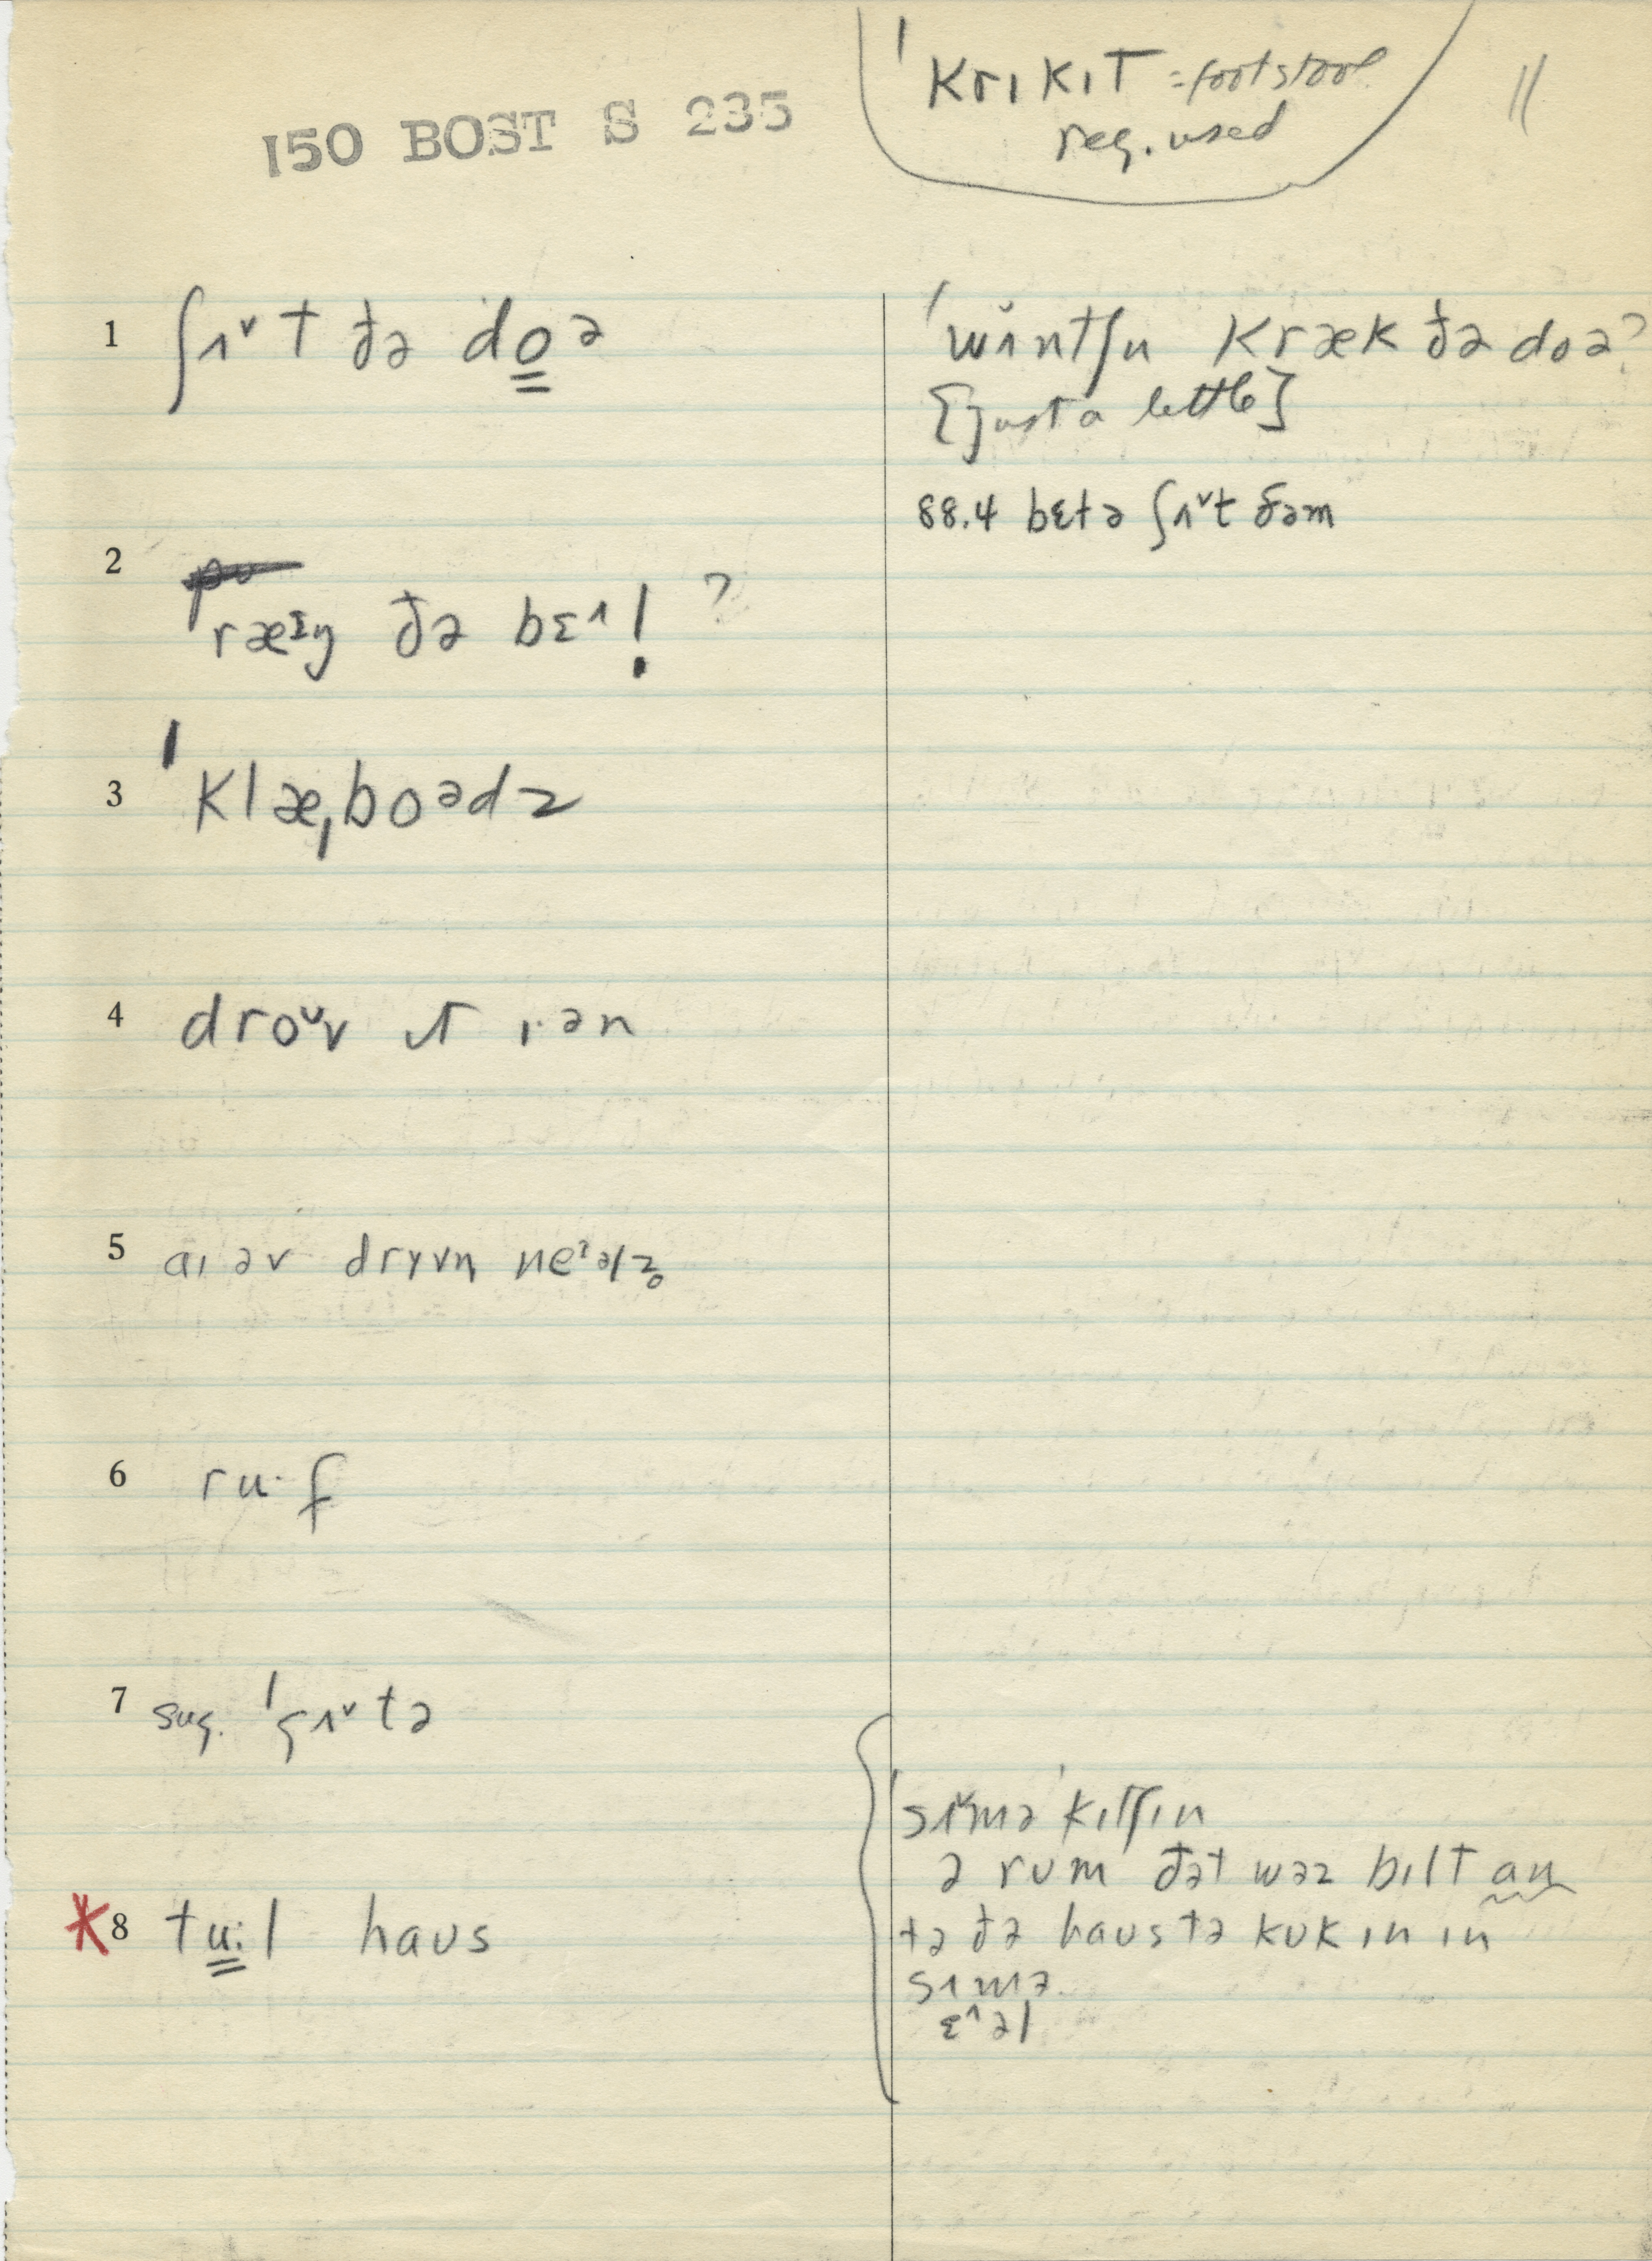 150 BOST S 235
ˈkrɪkɪt = footstool
reg. used
11
1 ʃʌˇt ðə doə
ˈwʌntʃu kræk ðə doə?
[just a little]
88.4 bɛtə ʃʌˇt ðəm
2
ræɪŋ ðə bɛ^!?
3 ˈklæˌboədz
4 droᴜv ɪt ɪ·ən
5 aɪ əv drɪvn neɪəlz̥
6 ru·f
7 sug. ˈgʌˇtə
ˈsʌˇməˈkɪtʃɪn
ə rum ðət wəz bɪlt an
*8 tu:l haus
tə ðə haus tə kuk ɪn ɪn
sʌmə
ɛ^əl